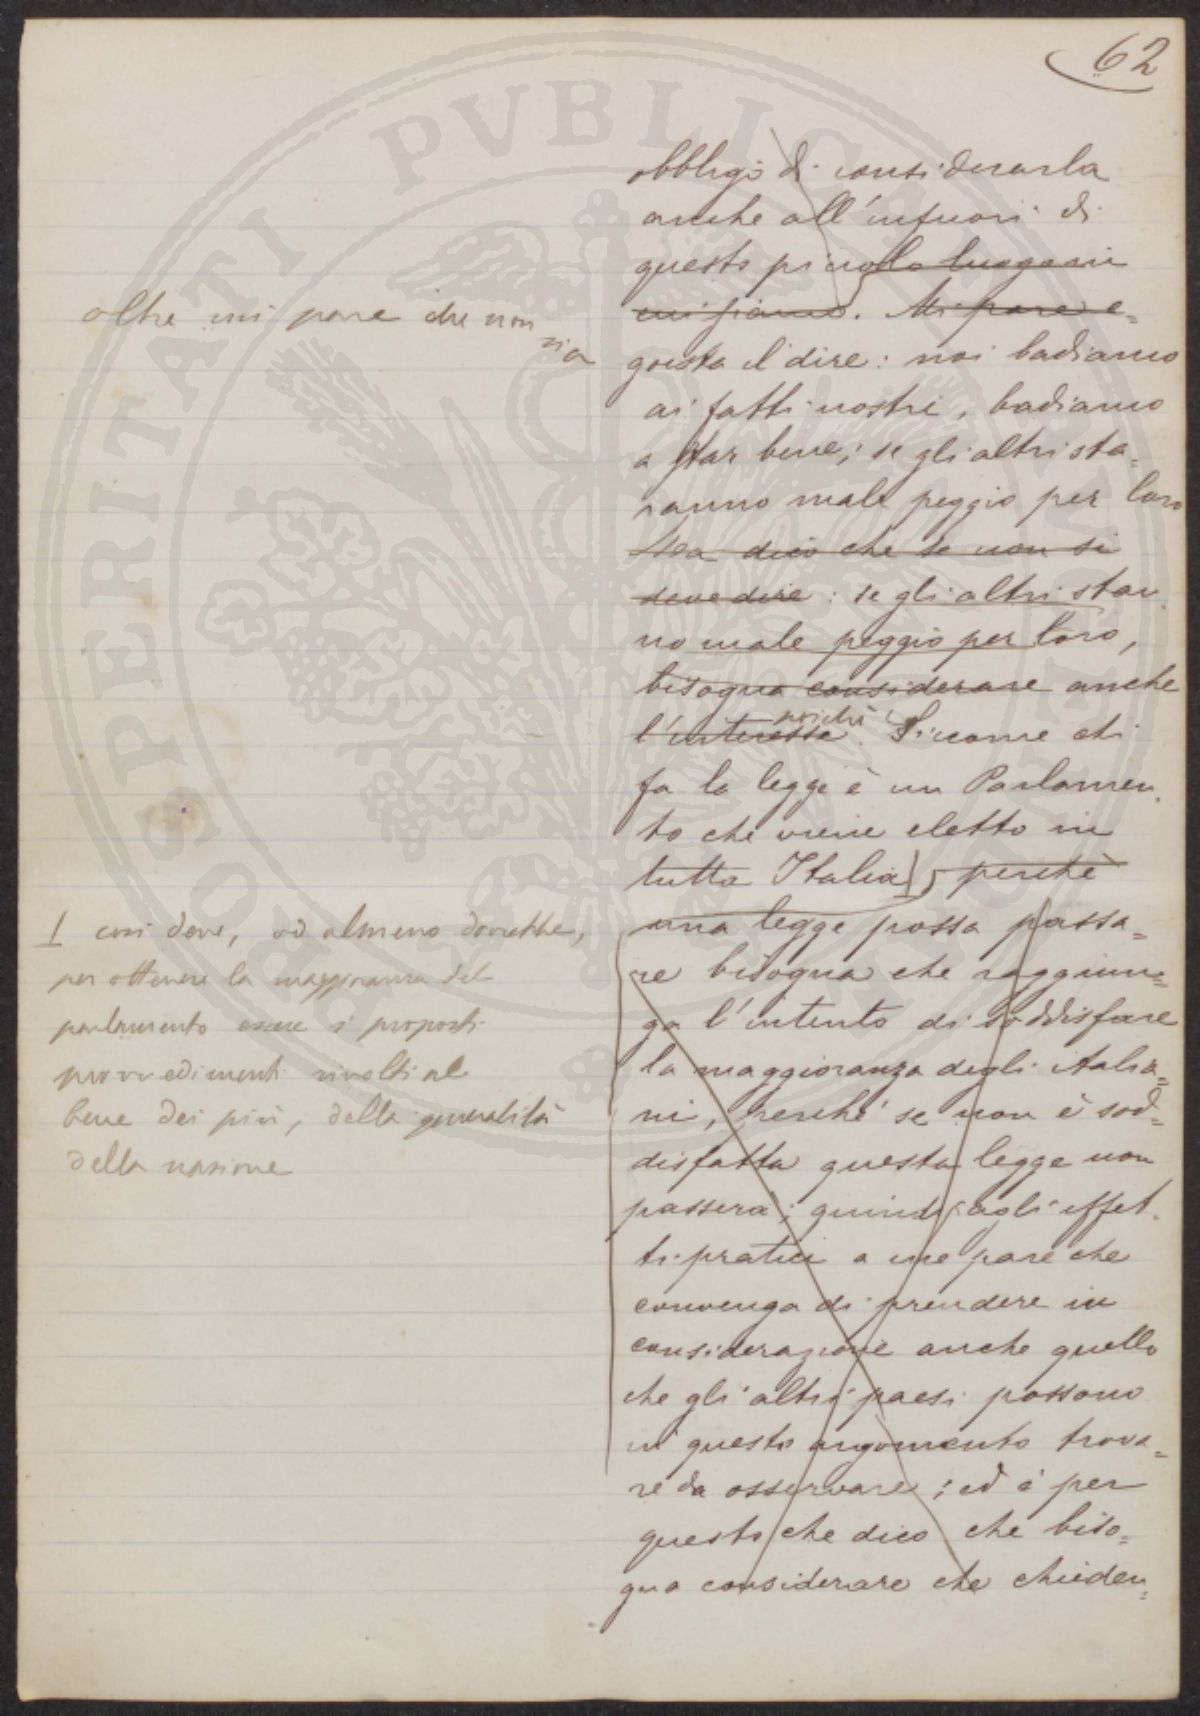 62
obbligo di considerarla
anche all'infuori di
questo piccolo luogo in
cui siamo. Mi pare e=
goista il dire: noi badiamo
ai fatti nostri, badiamo
a star bene; se gli altri sta=
ranno male peggio per loro
Ma dico che se non si
deve dire: se gli altri stan
no male peggio per loro,
bisogna considerare anche
l'interesse. poichè Siccome chi
fa la leggi è un Parlamen
to che viene eletto in
tutta Italia, perchè
una legge possa passa=
re bisogna che raggiun=
ga l'intento di soddisfare
la maggioranza degli italia=
ni, perchè se non è sod=
disfatta questa legge non
passerà; quindi agli effet
ti pratici a me pare che
convenga di prendere in
considerazione anche quello
che gli altri paesi possono
in questo argomento trova=
re da osservare; ed è per
questo che dico che biso=
gna considerare che chieden=
oltre mi pare che non
sia
1 così deve, od almeno dovrebbe,
per ottenere la maggioranza del
parlamento essere i proposti
provvedimenti rivolti al
bene dei più, della generalità
della nazione
PROSPERITATI PVBLICAE